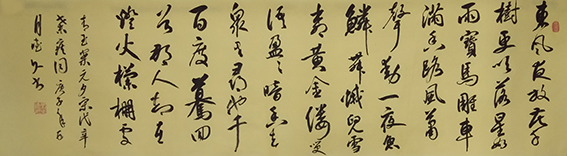 東風夜放花千
樹更吹落星如
雨寶馬雕車
滿香路鳳簫
聲動一夜魚
舞蛾兒雪
黃金縷笑
語盈々暗香去
衆里尋他千
百度驀回
首那人却在
燈火欄柵處
青玉案元夕宋代辛
棄疾詞庚子年
月書